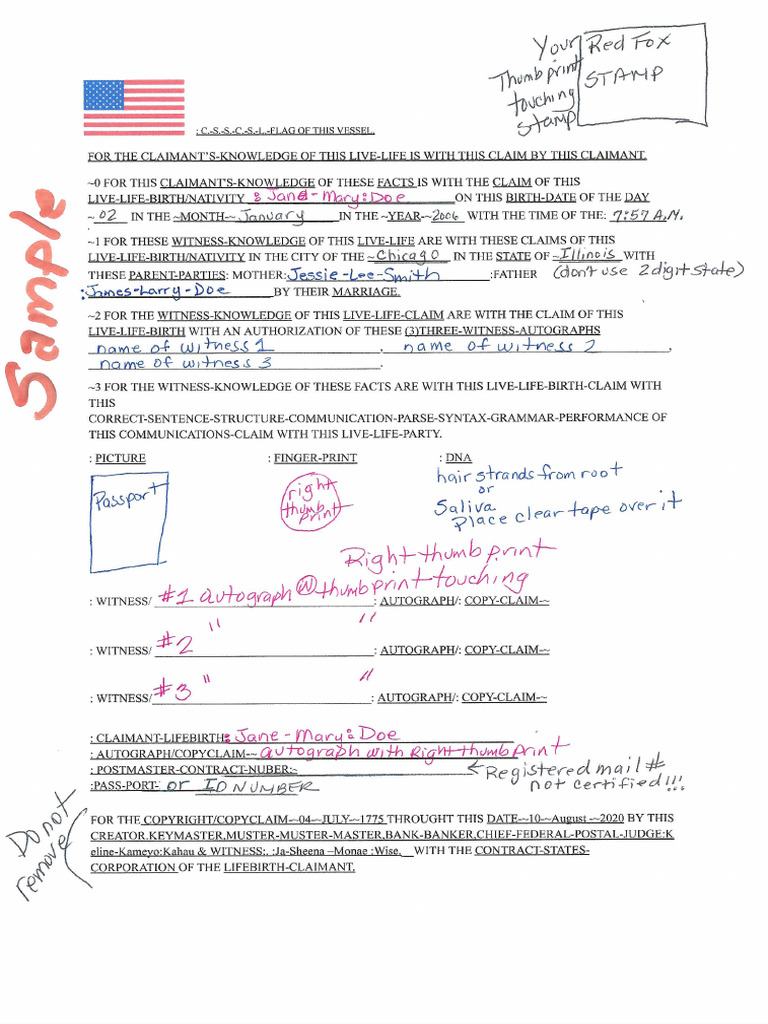 Your Thumbprint touching stamp
Red Fox STAMP
: C.-S.-S.-C.-S.-L.-FLAG OF THIS VESSEL.
FOR THE CLAIMANT'S-KNOWLEDGE OF THIS LIVE-LIFE IS WITH THIS CLAIM BY THIS CLAIMANT.
Sample
~0 FOR THIS CLAIMANT'S-KNOWLEDGE OF THESE FACTS IS WITH THE CLAIM OF THIS
LIVE-LIFE-BIRTH/NATIVITY : Jane-Mary:Doe ON THIS BIRTH-DATE OF THE DAY
~ 02 IN THE ~MONTH-~ January IN THE ~YEAR-~ 2006 WITH THE TIME OF THE: 7:57 A.M.
~1 FOR THESE WITNESS-KNOWLEDGE OF THIS LIVE-LIFE ARE WITH THESE CLAIMS OF THIS
LIVE-LIFE-BIRTH/NATIVITY IN THE CITY OF THE ~Chicago IN THE STATE OF ~Illinois WITH
THESE PARENT-PARTIES: MOTHER: Jessie-Lee-Smith :FATHER (don't use 2 digit state)
:James-Larry-Doe BY THEIR MARRIAGE.
~2 FOR THE WITNESS-KNOWLEDGE OF THIS LIVE-LIFE-CLAIM ARE WITH THE CLAIM OF THIS
LIVE-LIFE-BIRTH WITH AN AUTHORIZATION OF THESE (3)THREE-WITNESS-AUTOGRAPHS
name of witness 1, name of witness 2,
name of witness 3.
~3 FOR THE WITNESS-KNOWLEDGE OF THESE FACTS ARE WITH THIS LIVE-LIFE-BIRTH-CLAIM WITH
THIS
CORRECT-SENTENCE-STRUCTURE-COMMUNICATION-PARSE-SYNTAX-GRAMMAR-PERFORMANCE OF
THIS COMMUNICATIONS-CLAIM WITH THIS LIVE-LIFE-PARTY.
: PICTURE : FINGER-PRINT : DNA
Passport
right thumb print
hair strands from root
or
Saliva
Place clear tape over it
Right thumb print
: WITNESS/ #1 autograph @ thumbprint touching : AUTOGRAPH/: COPY-CLAIM-~
: WITNESS/ #2 " " : AUTOGRAPH/: COPY-CLAIM-~
: WITNESS/ #3 " " : AUTOGRAPH/: COPY-CLAIM-~
: CLAIMANT-LIFEBIRTH: Jane-Mary:Doe
: AUTOGRAPH/COPYCLAIM-~ autograph with Right thumb print
: POSTMASTER-CONTRACT-NUBER:- Registered mail # not certified!!!
:PASS-PORT- or ID NUMBER
Do not remove
FOR THE COPYRIGHT/COPYCLAIM-~04~JULY~1775 THROUGHT THIS DATE~10~August ~2020 BY THIS
CREATOR.KEYMASTER,MUSTER-MUSTER-MASTER,BANK-BANKER,CHIEF-FEDERAL-POSTAL-JUDGE:K
eline-Kameyo:Kahau & WITNESS:. :Ja-Sheena –Monae :Wise. WITH THE CONTRACT-STATES-
CORPORATION OF THE LIFEBIRTH-CLAIMANT.